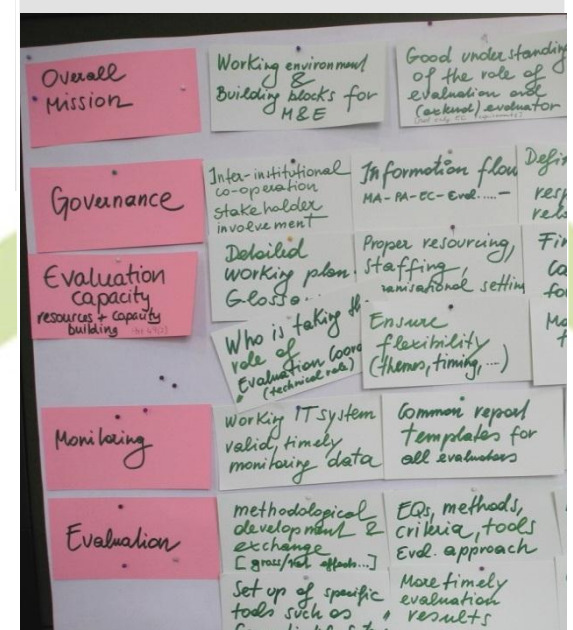 Overall
Mission
Working environment
&
Building blocks for
M&E
Good understanding
of the role of
evaluation and
(external) evaluator
Governance
Inter-institutional
co-operation
stakeholder
involvement
Information flow
MA-PA-EC-Eval....-
Defin
resp
rela
Evaluation
capacity
resources + capacity
building
Detailed
working plan
Glossa
Proper resourcing,
staffing,
anisational settin
Fin
Ca
fo
Who is taking th
role of
Evaluation Coord
(technical role)
Ensure
flexibility
(themes, timing, ...)
Mo
Monitoring
Working IT system
valid, timely
monitoring data
Common report
templates for
all evaluators
Evaluation
methodological
development &
exchange
[gross/net effects...]
EQs, methods,
criteria, tools
Eval. approach
Set up of specific
tools such as
More timely
evaluation
results